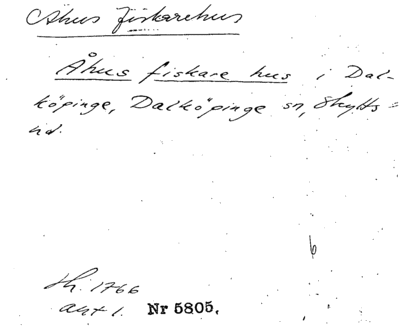 Åhus fiskarehus
Åhus fiskare hus i Dal-
köpinge, Dalköpinge sn, Skytts
hd.
th. 1766
akt 1. Nr 5805.